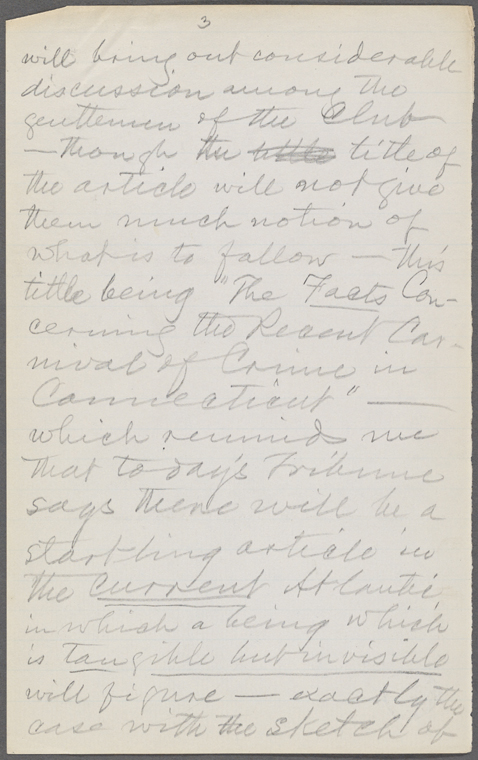 3
will bring out considerable
discussion among the
gentlemen of the Club
— though the title of
the article will not give
them much notion of
what is to follow — this
title being "The Facts Con-
cerning the Recent Car-
nival of Crime in
Connecticut" —
which reminds me
that to-day's Tribune
says there will be a
startling article in
the current Atlantic,
in which a being which
is tangible but invisible
will figure — exactly the
case with the sketch of